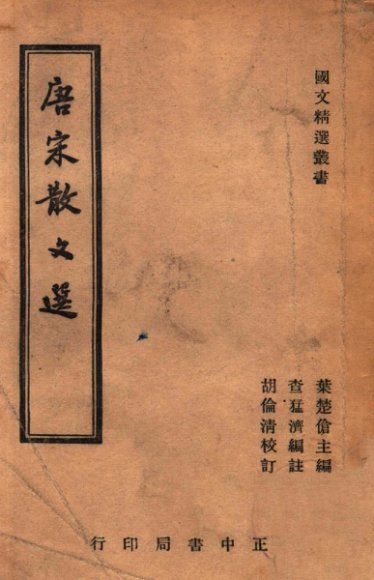 國文精選叢書
唐宋散文選
葉楚傖主編
查猛濟編註
胡倫清校訂
正中書局印行